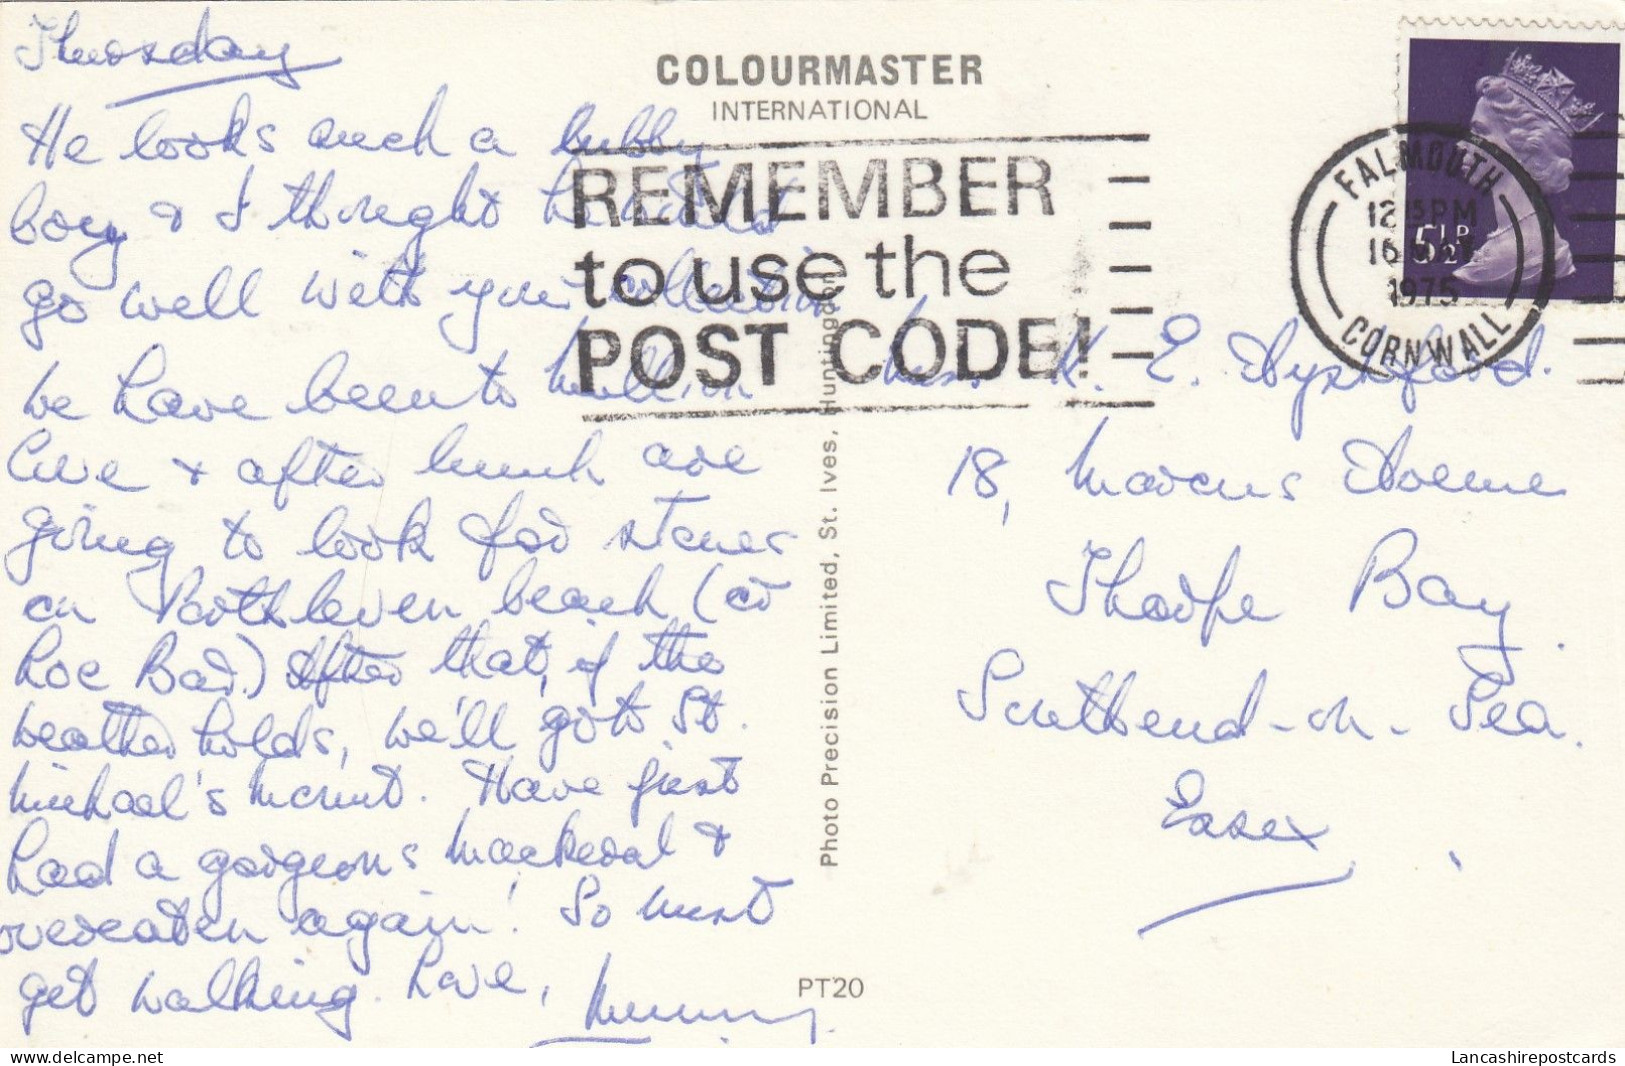 Thursday
He looks such a hubby
boy & I thought he would
go well with your collection
We have been to Mullion
Cove & after lunch are
going to look for stones
on Porthleven beach (or
Loe Bar.) After that, if the
weather holds, we'll go to St.
Michael's Mount. Have just
had a gorgeous mackeral &
overeaten again! So must
get walking. Love,
Mummy.
COLOURMASTER
INTERNATIONAL
REMEMBER
to use the
POST CODE!
FALMOUTH
12 15 PM
16
1975
CORNWALL
5½P
Photo Precision Limited, St. Ives, Huntingdon
PT20
K. E.
18, Marcus Avenue
Thorpe Bay.
Southend-on-Sea.
Essex
Lancashirepostcards